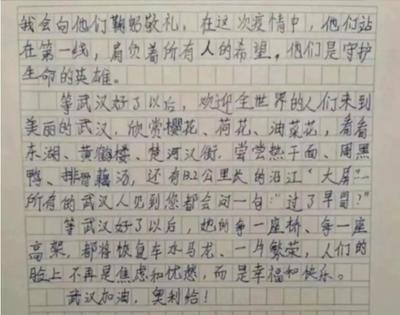 我会向他们鞠躬敬礼，在这次疫情中，他们站
在第一线，肩负着所有人的希望。他们是守护
生命的英雄。
等武汉好了以后，欢迎全世界的人们来到
美丽的武汉，欣赏樱花、荷花、油菜花，看看
东湖、黄鹤楼、楚河汉街，尝尝热干面、周黑
鸭、排骨藕汤，还有13.2公里长的沿江“大屏”…
所有的武汉人见到您都会问一句“过了早冒？”
等武汉好了以后，她的每一座桥、每一座
高架，都将恢复车水马龙、一片繁荣，人们的
脸上不再是焦虑和忧愁，而是幸福和快乐。
武汉加油，奥利给！